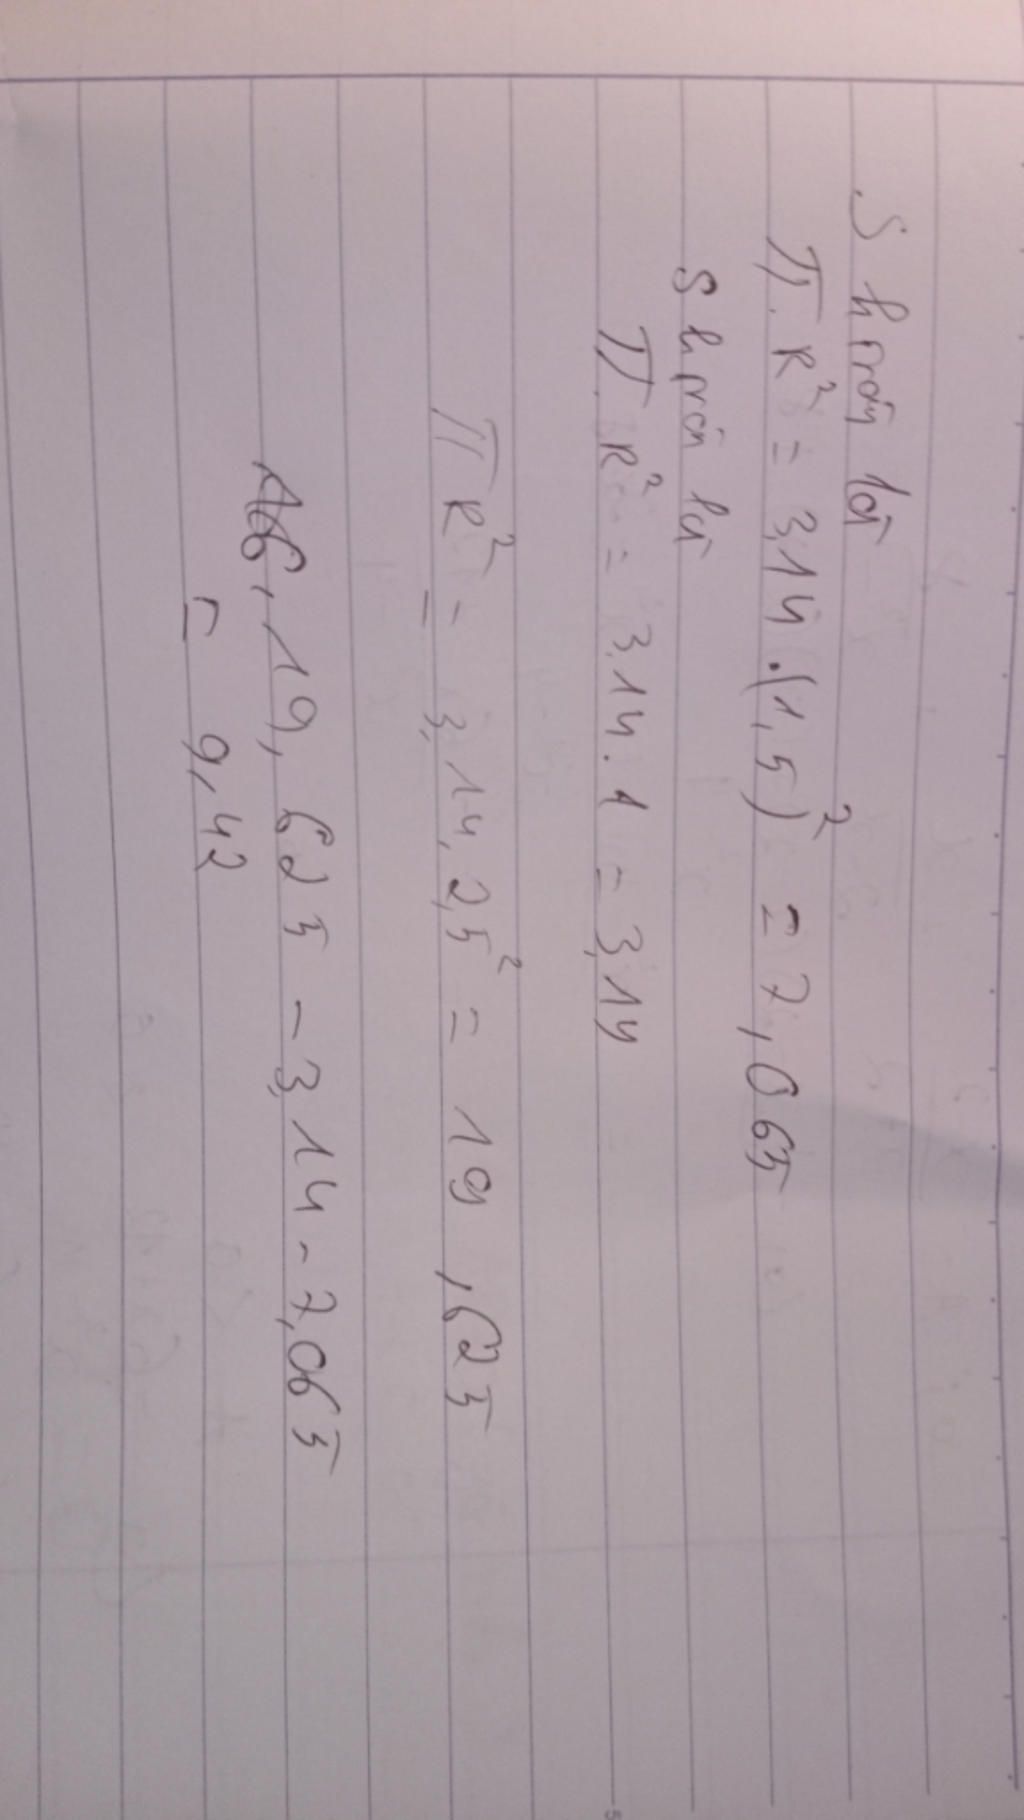 S h tròn lớ
π. R² = 3,14 .(1,5)² = 7,065
S h tròn là
π. R² = 3,14. 1 = 3,14
π R² = 3,14. 2,5² = 19,625
19,625 - 3,14 - 7,065
= 9,42